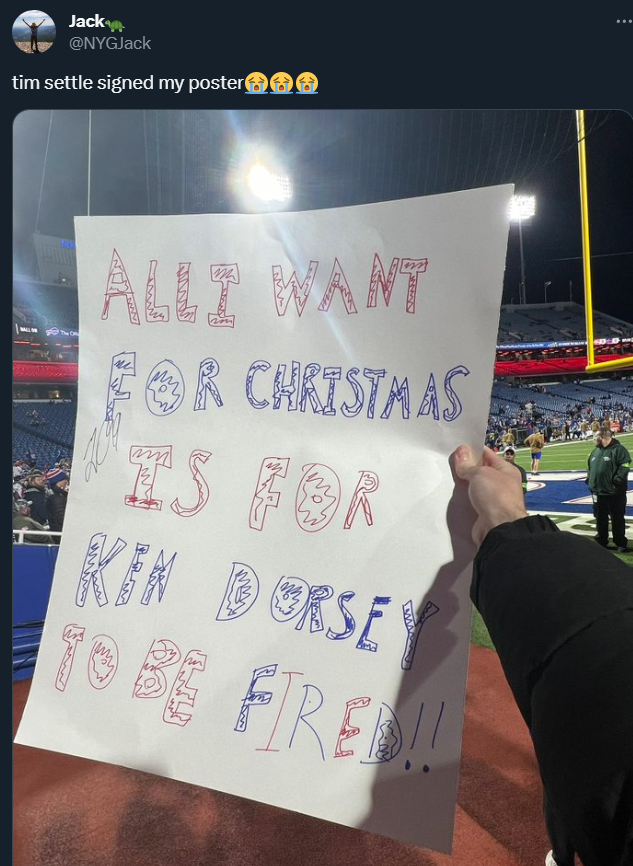 Jack🐢
@NYGJack
tim settle signed my poster😭😭😭
ALL I WANT
FOR CHRISTMAS
IS FOR
KEN DORSEY
TO BE FIRED!!